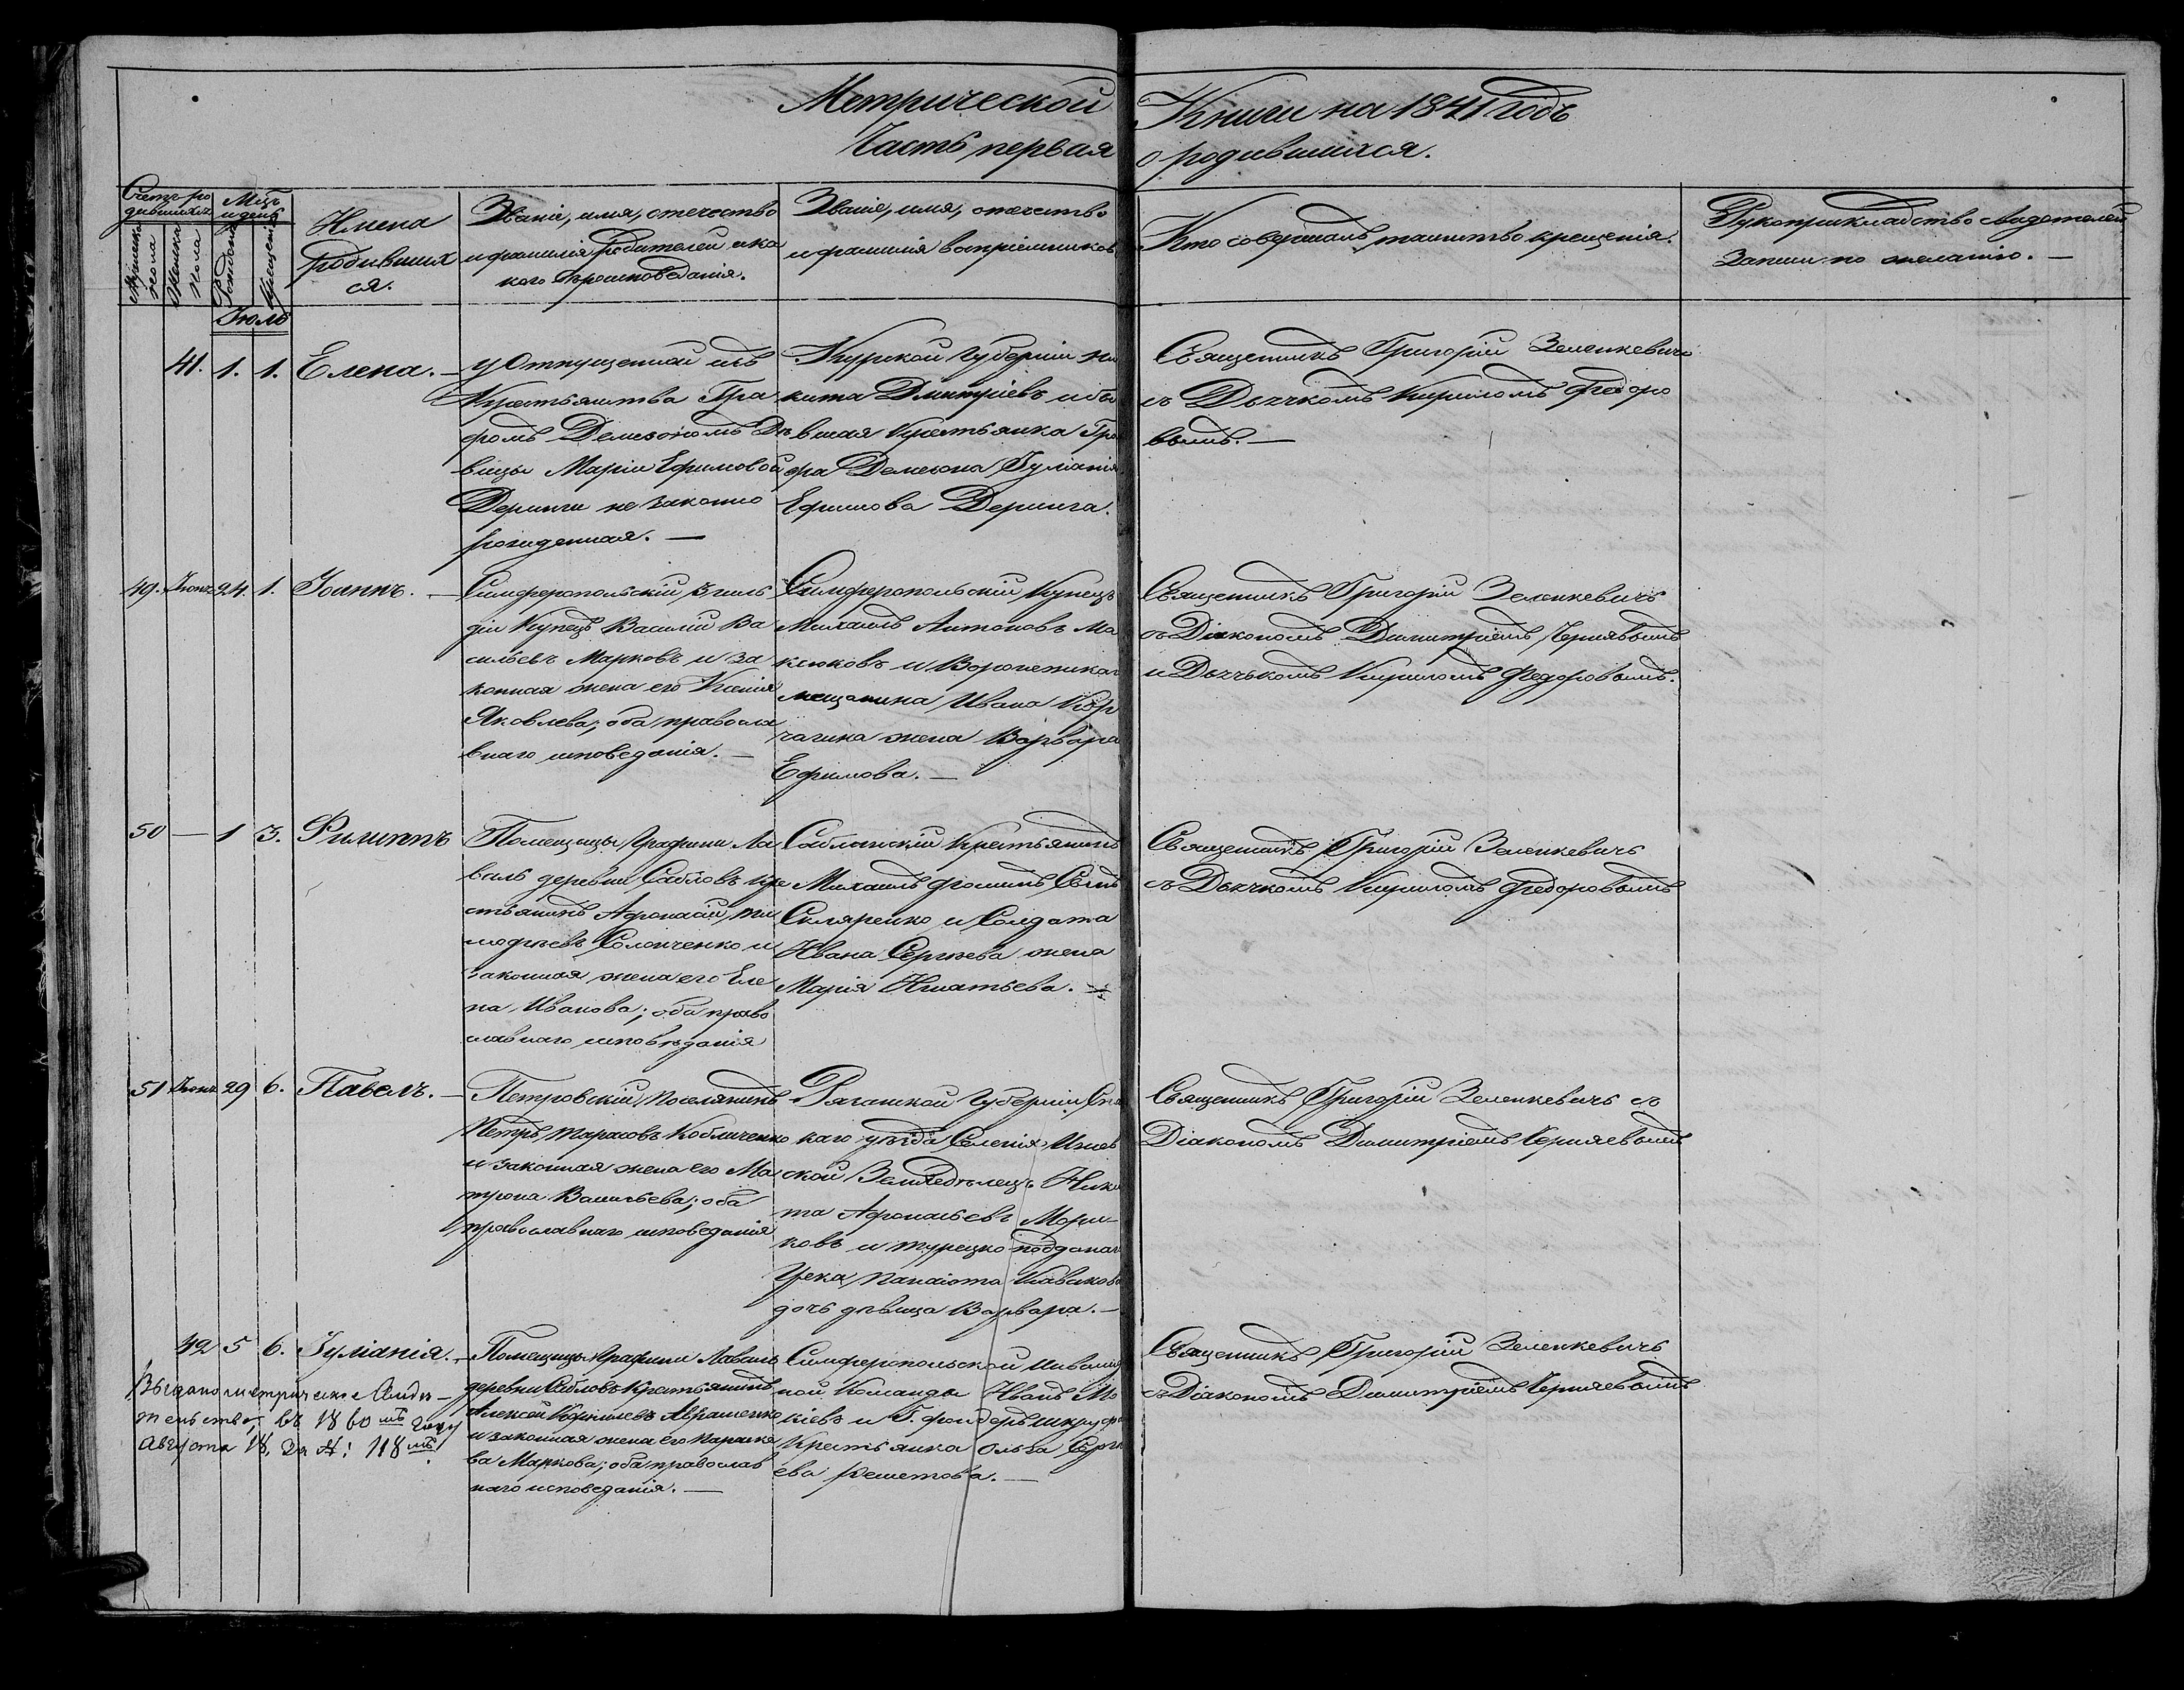 Метрической Книги на 1841 годъ
Часть первая о родившихся.
Счетъ ро
дившихся
Мужеска
пола
Женска
пола
Мцъ
и день
Рожденія
Крещенія
Имена
Родивших
ся.
Званіе, имя, отечество
и фамилія Родителей и ка
кого вѣроисповѣданія.
Званіе, имя, отечество
и фамилія воспріемниковъ
Кто совершалъ таинство крещенія.
Рукоприкладство свидетелей
Записи по желанію. —
Іюль
41. 1. 1. Елена. —
у Отпущенной изъ
Крестьянства Гра
фомъ Демезономъ Дѣ
вицы Маріи Ефимовой
Деринги не законно
рожденная. —
Курской Губерніи Ни
кита Дмитріевъ и бы
вшая Крестьянка Гра
фа Демезона Іуліанія
Ефимова Деринга.
Священникъ Григорій Зеленкевичъ
съ Дьячкомъ Кириломъ Федоро
вымъ. —
49. Іюня 24. 1. Іоаннъ. —
Симферопольскій 3 гиль
діи Купецъ Василій Ва
сильевъ Марковъ и за
конная жена его Ксенія
Яковлева; оба правосла
внаго исповеданія. —
Симферопольскій Купецъ
Михаилъ Антоновъ Ма
клюковъ и Воронежскаг
мещанина Ивана Кор
чагина жена Варвара
Ефимова. —
Священникъ Григорій Зеленкевичъ
съ Діакономъ Димитріемъ Чернявымъ
и Дьячькомъ Кириломъ Федоровымъ.
50 — 1 3. Филиппъ
Помещицы Графини Ла
валь деревни Сабловъ Кре
стьянинъ Афонасій Ти
мофѣевъ Солонченко и
законная жена его Еле
на Иванова; оба право
славнаго исповѣданія
Саблынскій Крестьянинъ
Михаилъ Фоминъ Сынъ
Скляренко и Солдата
Ивана Сергѣева жена
Марія Игнатьева. —
Священникъ Григорій Зеленкевичъ
съ Дьячкомъ Кириломъ Федоровымъ
51 Іюня 29 6. Павелъ. —
Петровскій Поселянинъ
Петръ Тарасовъ Кобличенко
и законная жена его Ма
трона Васильева; оба
православнаго исповеданія
Рязанской Губерніи Спа
каго уѣзда Селенія Ижев
ской Земледѣлецъ Ники
та Афонасьевъ Мори
ковъ и турецко подданаг
Грека Панаіота Клавиков
дочь дѣвица Варвара. —
Священникъ Григорій Зеленкевичъ съ
Діакономъ Димитріемъ Чернявевымъ
42 5 6. Іуліанія. —
Помещицы Графини Лаваль
деревни Сабловъ Крестьянинъ
Алексей Корнилевъ Авраменко
и законная жена его Параске
ва Маркова; оба православ
наго исповеданія. —
Симферопольской Инвалид
ной Команды Иванъ Мо
кіевъ и Г. фон
Крестьянка Ольга Серге
ева Решетова. —
Священникъ Григорій Зеленкевичъ
съ Діакономъ Димитріемъ Чернявевымъ
Выдано метрическое Свиде-
тельство, въ 1860мъ году
Августа 18, за №: 118мъ